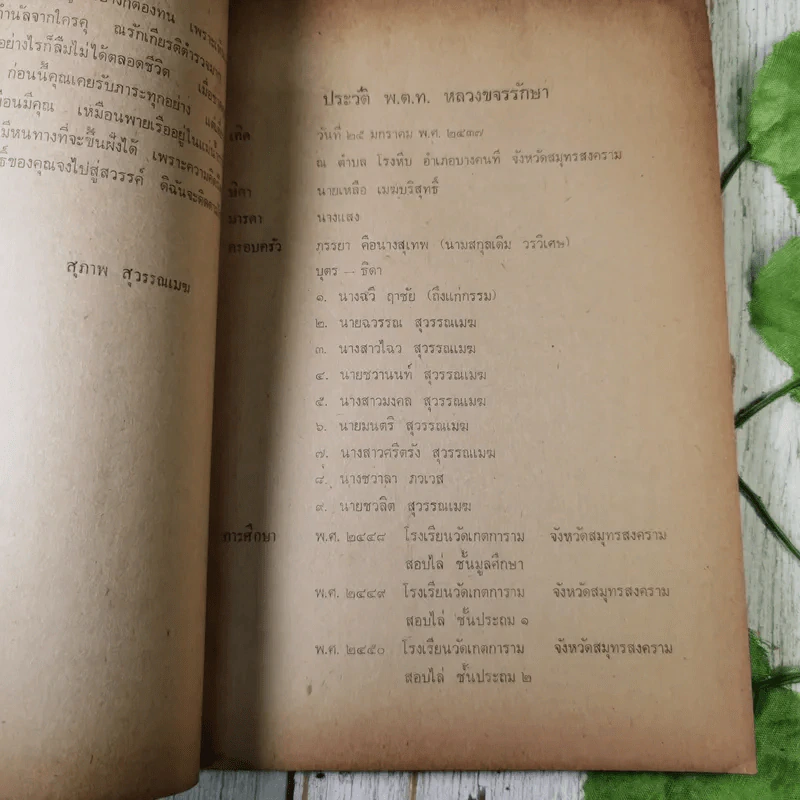 ก่อนนี้คุณเคยรับภาระทุกอย่าง
เหมือนพายเรืออยู่ใน
มีหนทางที่จะขึ้นฝั่งได้ เพราะความ
ของคุณจงไปสู่สวรรค์ ดิฉันจะ
สุภาพ สุวรรณเมฆ
ประวัติ พ.ต.ท. หลวงขจรรักษา
เกิด วันที่ ๒๕ มกราคม พ.ศ. ๒๔๓๗
ณ ตำบล โรงหีบ อำเภอบางคนที จังหวัดสมุทรสงคราม
บิดา นายเหลือ เมฆบริสุทธิ์
มารดา นางแสง
ครอบครัว ภรรยา คือนางสุเทพ (นามสกุลเดิม วรวิเศษ)
บุตร — ธิดา
๑. นางฉวี ฤาชัย (ถึงแก่กรรม)
๒. นายฉวรรณ สุวรรณเมฆ
๓. นางสาวไฉว สุวรรณเมฆ
๔. นายชวานนท์ สุวรรณเมฆ
๕. นางสาวมงคล สุวรรณเมฆ
๖. นายมนตรี สุวรรณเมฆ
๗. นางสาวศรีตรัง สุวรรณเมฆ
๘. นางชวาลา ภวเวส
๙. นายชวลิต สุวรรณเมฆ
การศึกษา พ.ศ. ๒๔๔๘ โรงเรียนวัดเกตการาม จังหวัดสมุทรสงคราม
สอบไล่ ชั้นมูลศึกษา
พ.ศ. ๒๔๔๙ โรงเรียนวัดเกตการาม จังหวัดสมุทรสงคราม
สอบไล่ ชั้นประถม ๑
พ.ศ. ๒๔๕๐ โรงเรียนวัดเกตการาม จังหวัดสมุทรสงคราม
สอบไล่ ชั้นประถม ๒